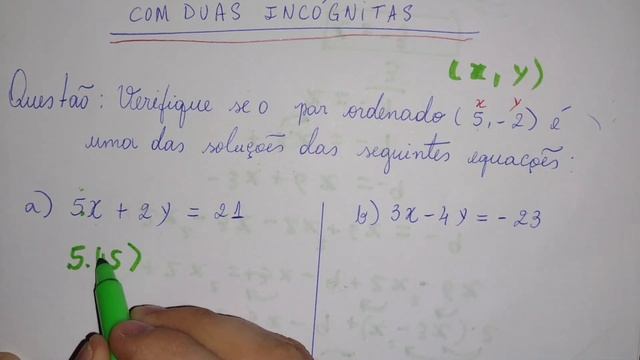 COM DUAS INCÓGNITAS
(x, y)
x y
Questão: Verifique se o par ordenado (5, -2) é
uma das soluções das seguintes equações:
a) 5x + 2y = 21
b) 3x - 4y = -23
5.(5)